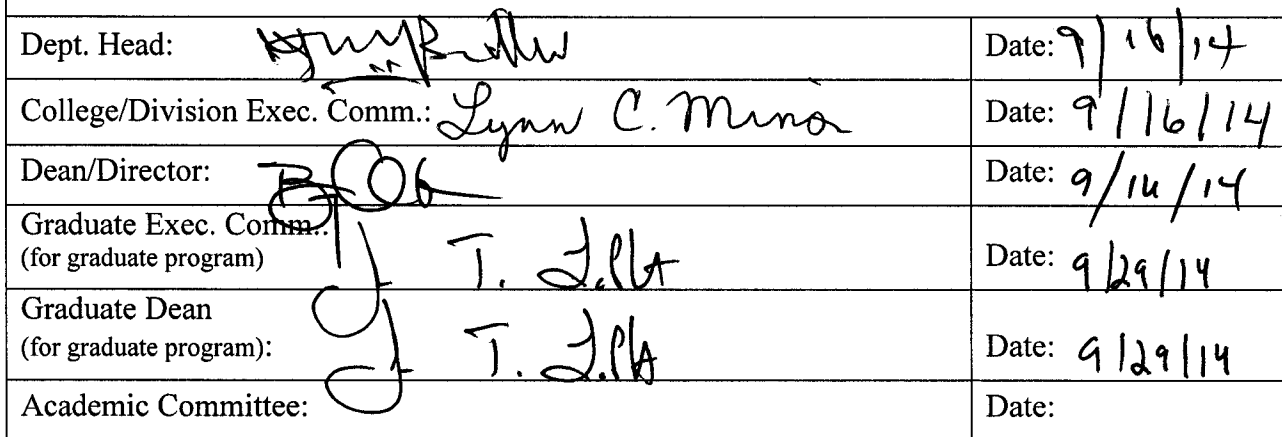 Dept. Head: Date: 9/16/14
College/Division Exec. Comm.: Lynn C. Minor Date: 9/16/14
Dean/Director: Date: 9/16/14
Graduate Exec. Comm.:
(for graduate program) J. T. Date: 9/29/14
Graduate Dean
(for graduate program): J. T. Date: 9/29/14
Academic Committee: Date: